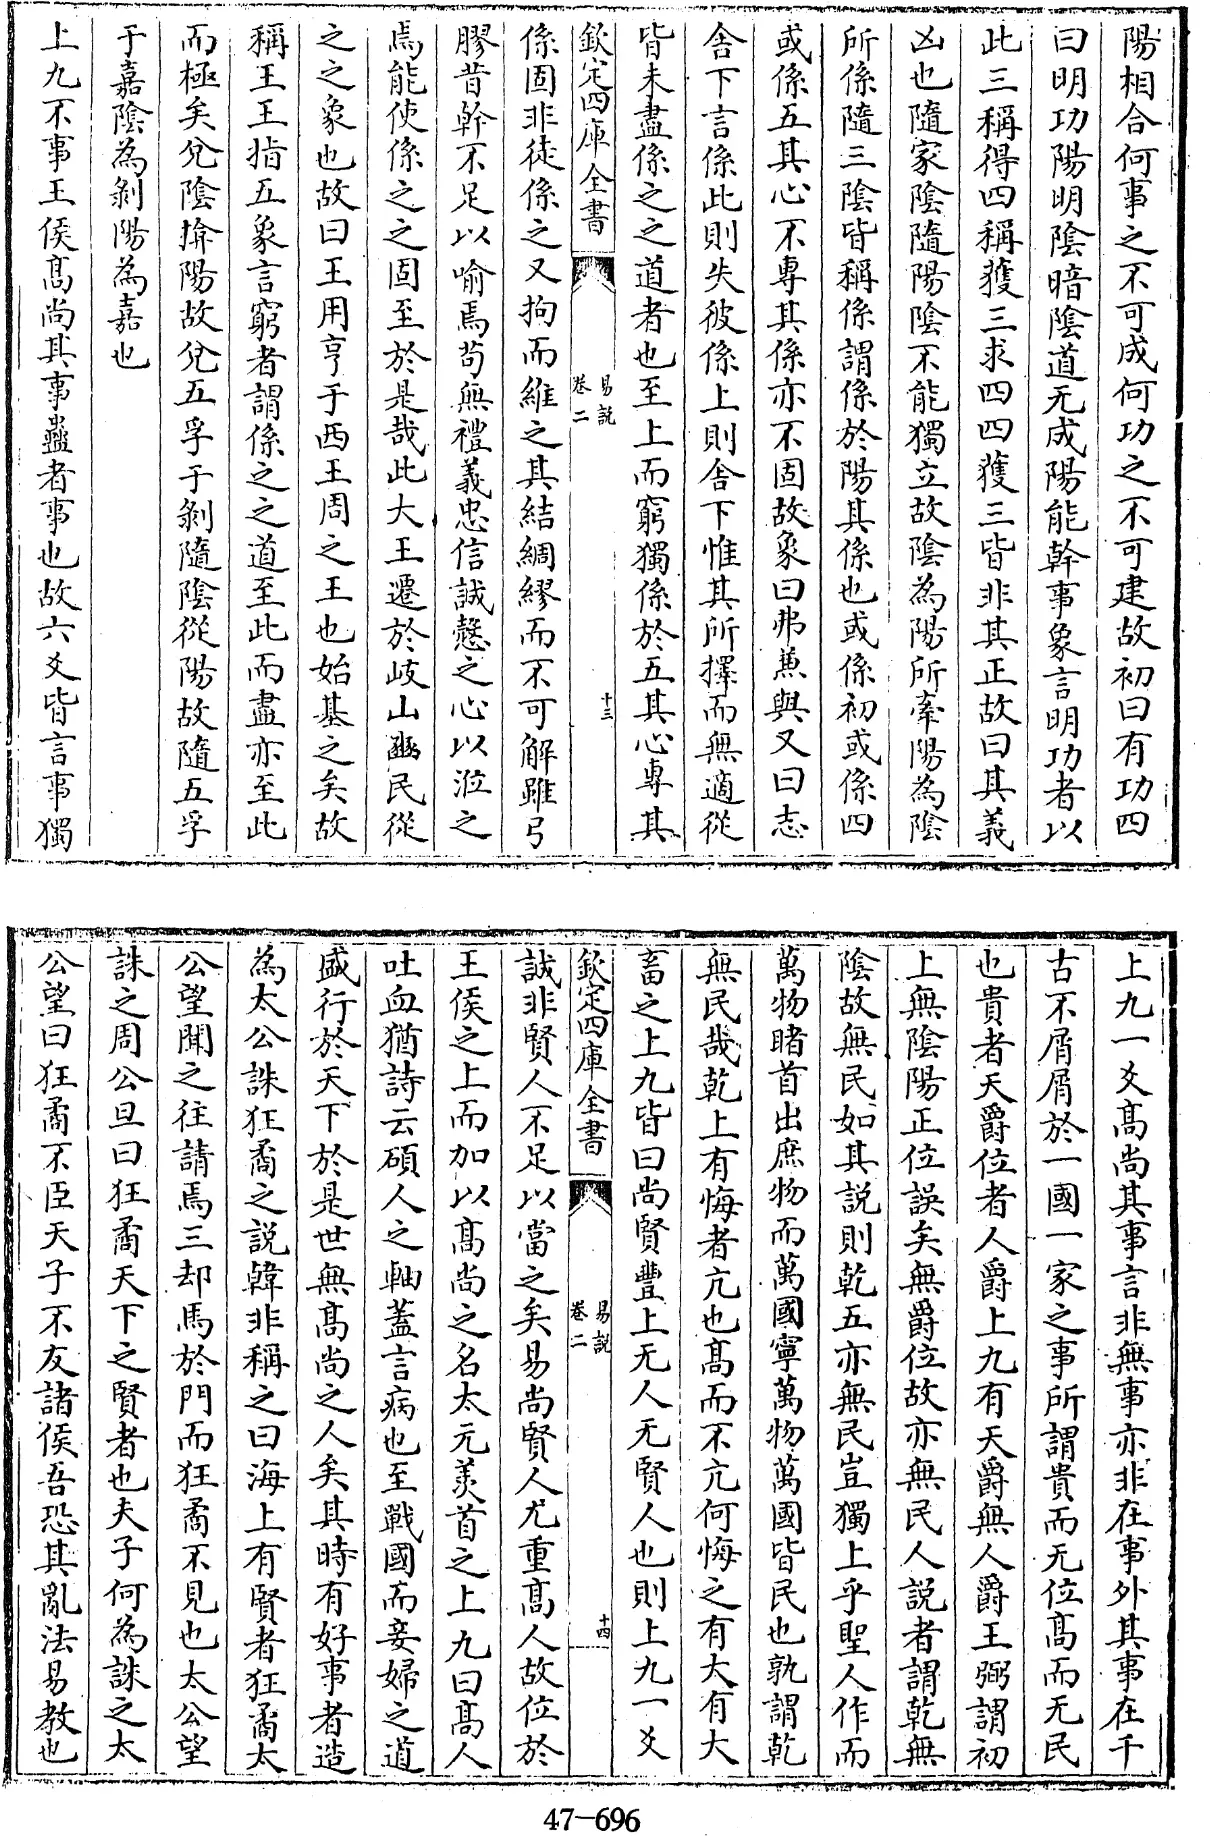 陽相合何事之不可成何功之不可建故初曰有功四
曰明功陽明陰暗陰道无成陽能幹事象言明功者以
此三稱得四稱獲三求四四獲三皆非其正故曰其義
凶也隨家陰隨陽陰不能獨立故陰為陽所牽陽為陰
所係隨三陰皆稱係謂係於陽其係也或係初或係四
或係五其心不專其係亦不固故象曰弗兼與又曰志
舎下言係此則失彼係上則舎下惟其所擇而無適從
皆未盡係之之道者也至上而窮獨係於五其心專其
欽定四庫全書
易説
卷二
十三
係固非徒係之又拘而維之其結綢繆而不可解雖弓
膠昔幹不足以喻焉苟無禮義忠信誠慤之心以涖之
焉能使係之之固至於是哉此大王遷於岐山豳民從
之之象也故曰王用亨于西王周之王也始基之矣故
稱王王指五象言窮者謂係之之道至此而盡亦至此
而極矣兊陰揜陽故兊五孚于剝隨陰從陽故隨五孚
于嘉陰為剝陽為嘉也
上九不事王侯髙尚其事蠱者事也故六爻皆言事獨
上九一爻髙尚其事言非無事亦非在事外其事在千
古不屑屑於一國一家之事所謂貴而无位髙而无民
也貴者天爵位者人爵上九有天爵無人爵王弼謂初
上無陰陽正位誤矣無爵位故亦無民人説者謂乾無
陰故無民如其説則乾五亦無民豈獨上乎聖人作而
萬物睹首出庶物而萬國寧萬物萬國皆民也孰謂乾
無民哉乾上有悔者亢也髙而不亢何悔之有大有大
畜之上九皆曰尚賢豐上无人无賢人也則上九一爻
欽定四庫全書
易説
卷二
十四
誠非賢人不足以當之矣易尚賢人尤重髙人故位於
王侯之上而加以髙尚之名太元羨首之上九曰髙人
吐血猶詩云碩人之軸蓋言病也至戰國而妾婦之道
盛行於天下於是世無髙尚之人矣其時有好事者造
為太公誅狂矞之説韓非稱之曰海上有賢者狂矞太
公望聞之往請焉三却馬於門而狂矞不見也太公望
誅之周公旦曰狂矞天下之賢者也夫子何為誅之太
公望曰狂矞不臣天子不友諸侯吾恐其亂法易教也
47-696